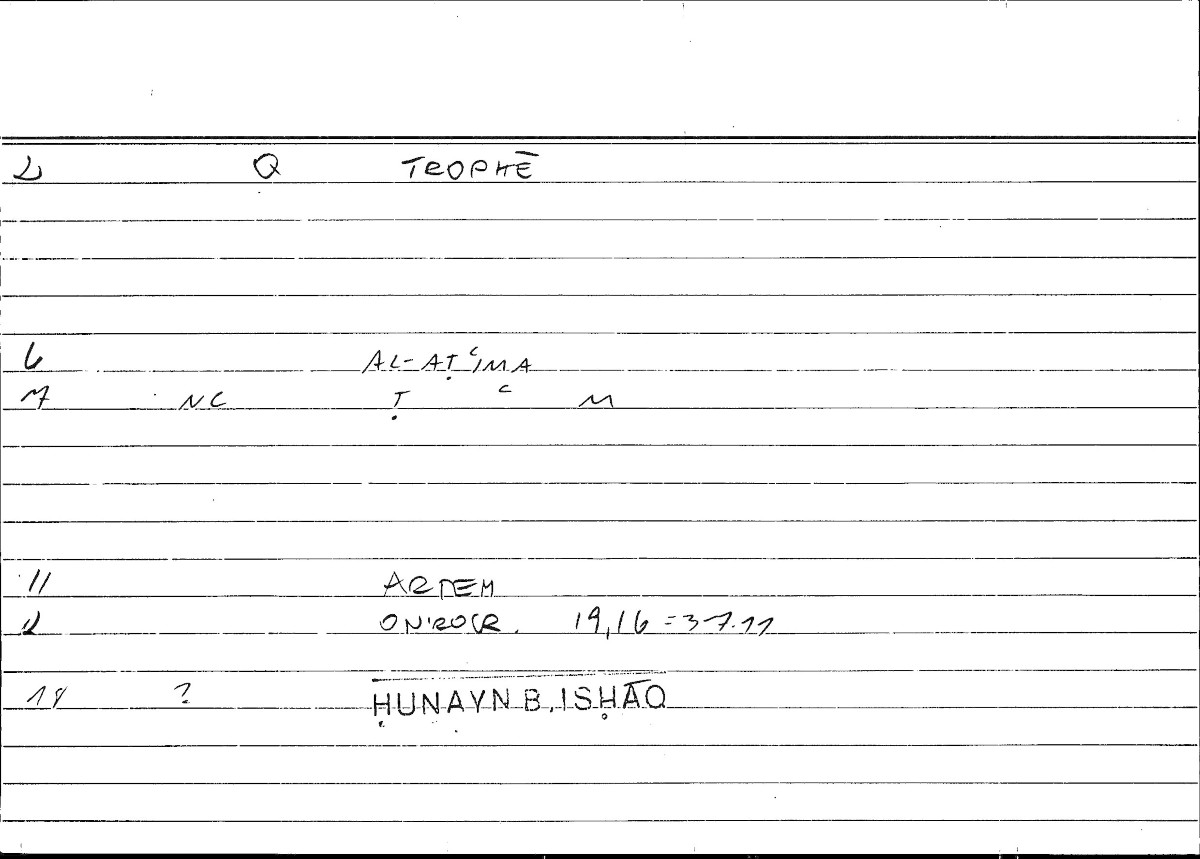 2 Q TROPHĒ
6 AL-AṬʿIMA
7 NC Ṭ ʿ M
11 ARDEM
12 ONIROCR. 19,16 = 37.11
18 ? ḤUNAYN B. ISḤĀQ